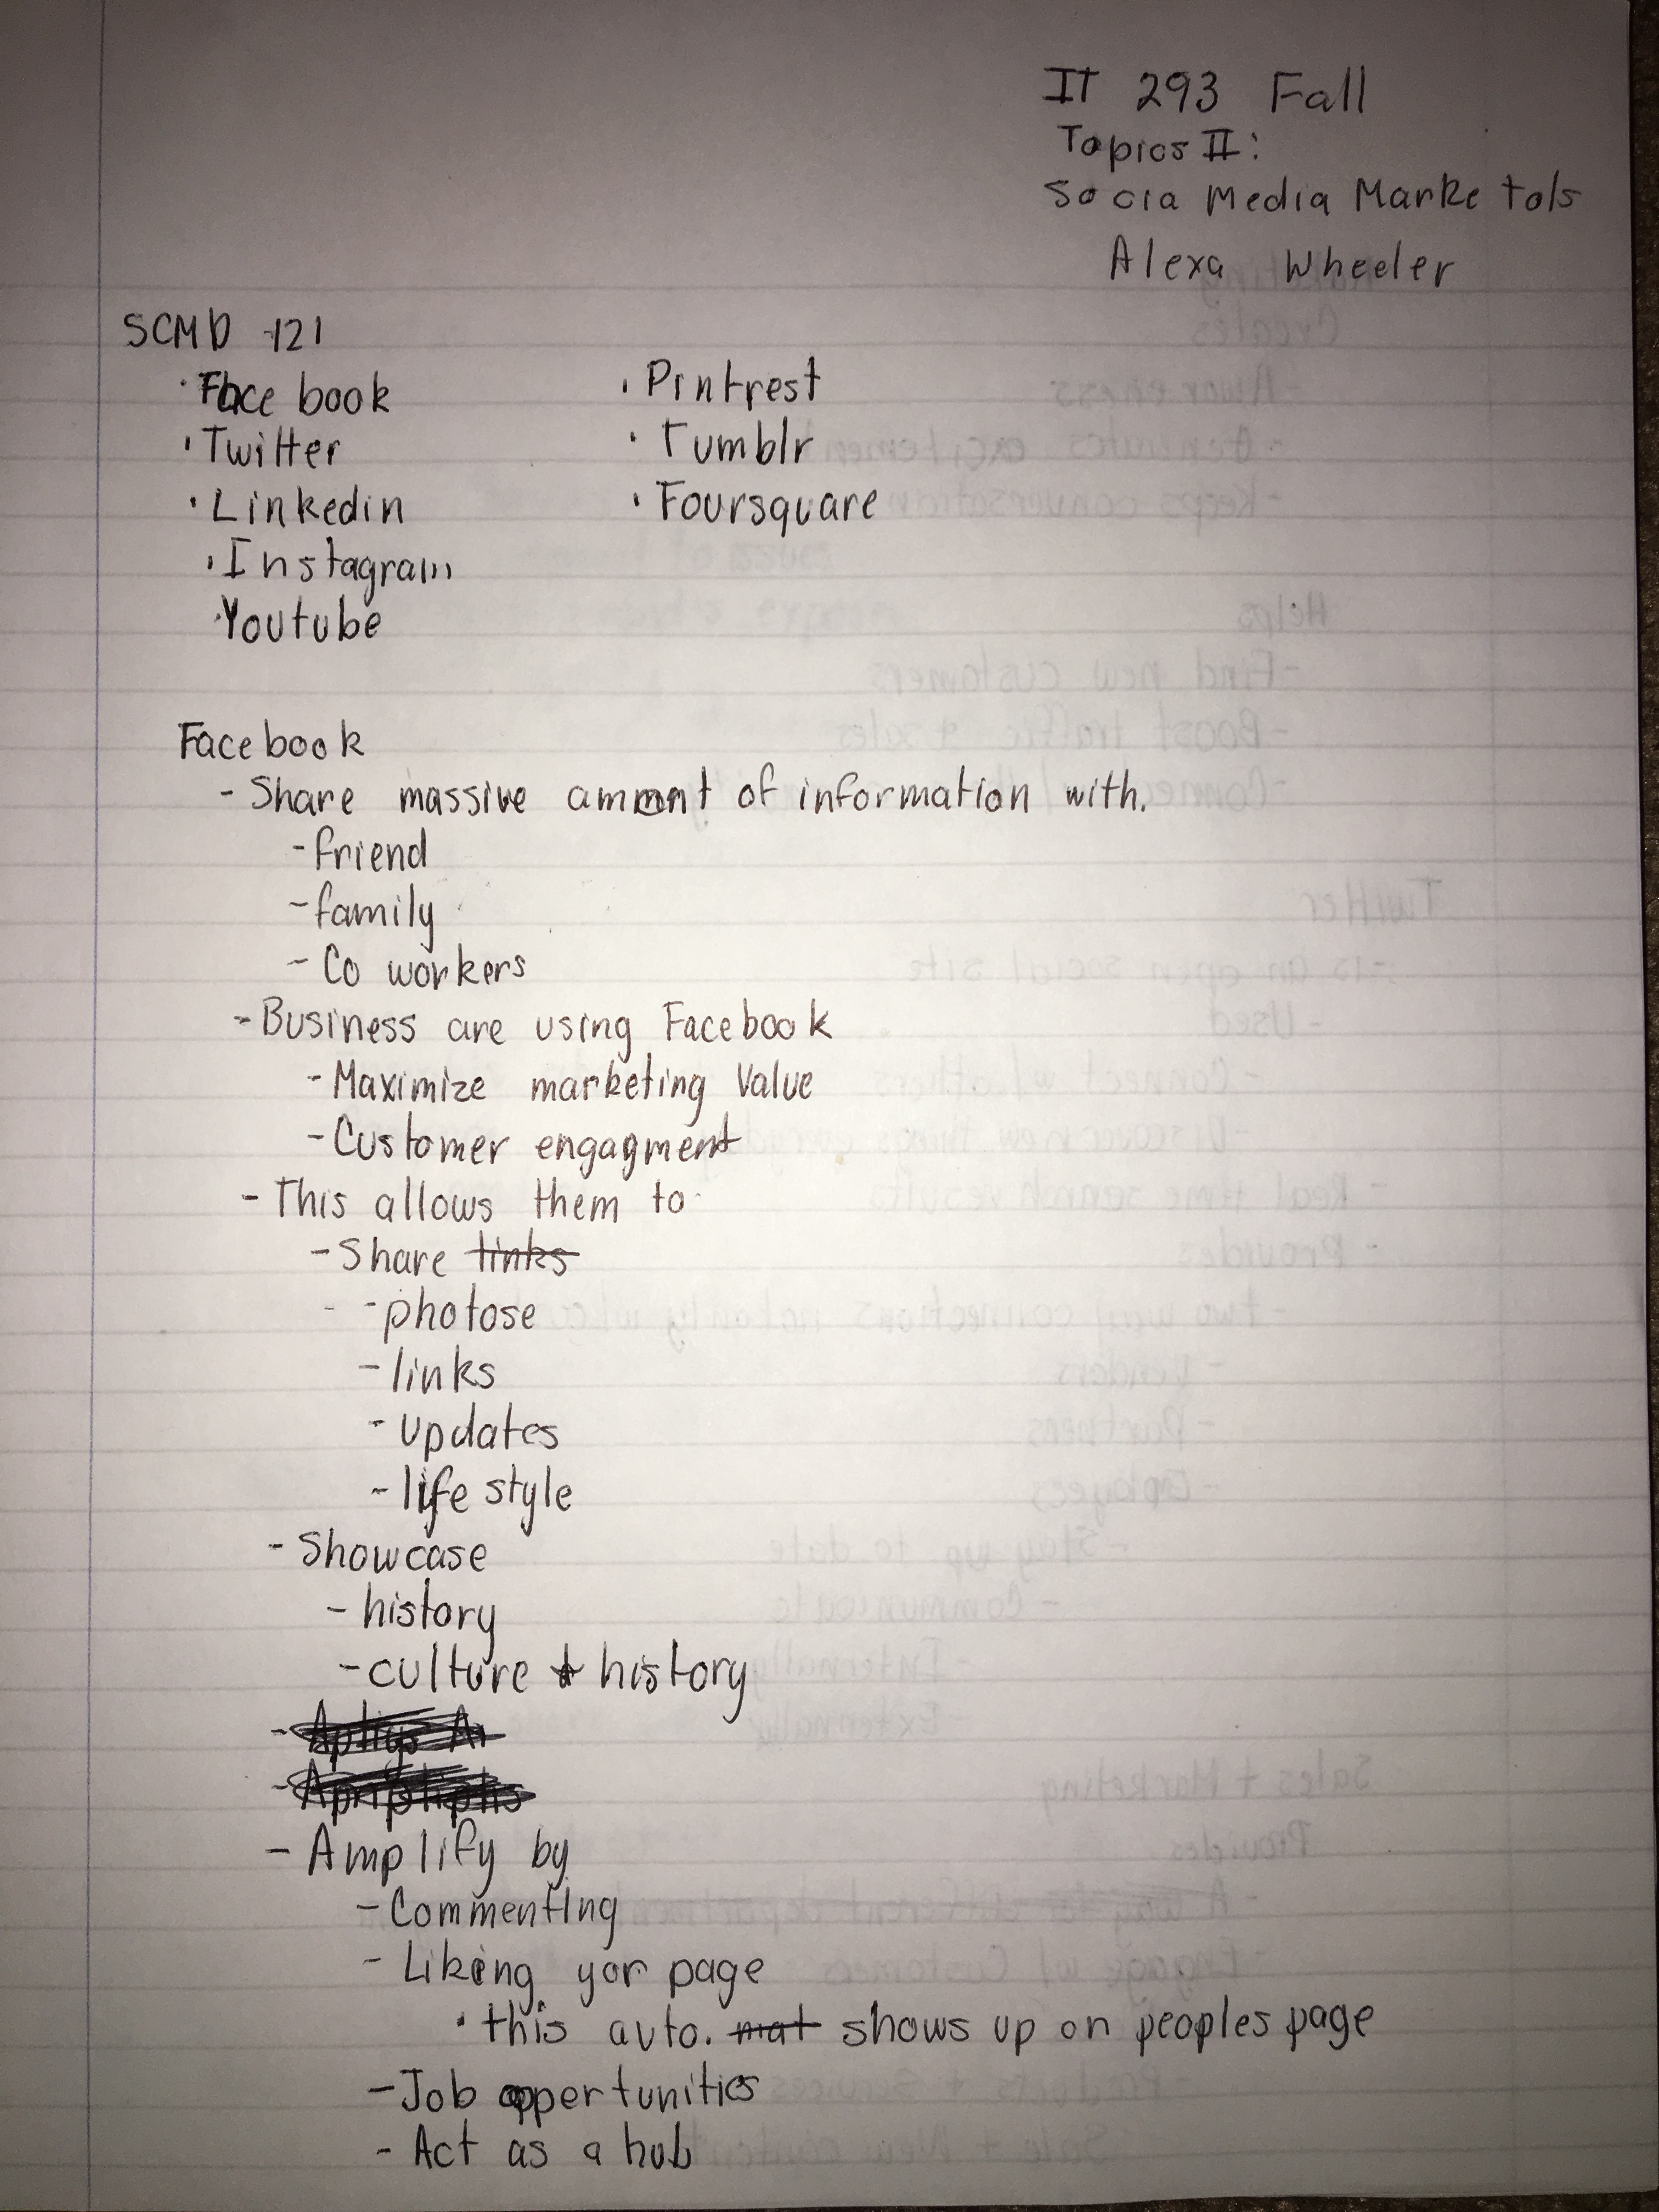 IT 293 Fall
Topics II:
Socia Media Marke tols
Alexa Wheeler
SCMD -121
· Facebook
· Twitter
· Linkedin
· Instagram
· Youtube
· Pintrest
· Tumblr
· Foursquare
Facebook
- Share massive amount of information with.
- friend
- family
- Co workers
- Business are using Facebook
- Maximize marketing Value
- Customer engagment
- This allows them to
- Share links
- photose
- links
- updates
- life style
- Showcase
- history
- culture + history
- Amplify by
- Commenting
- Liking yor page
· this auto. mat shows up on peoples page
- Job oppertunities
- Act as a hub